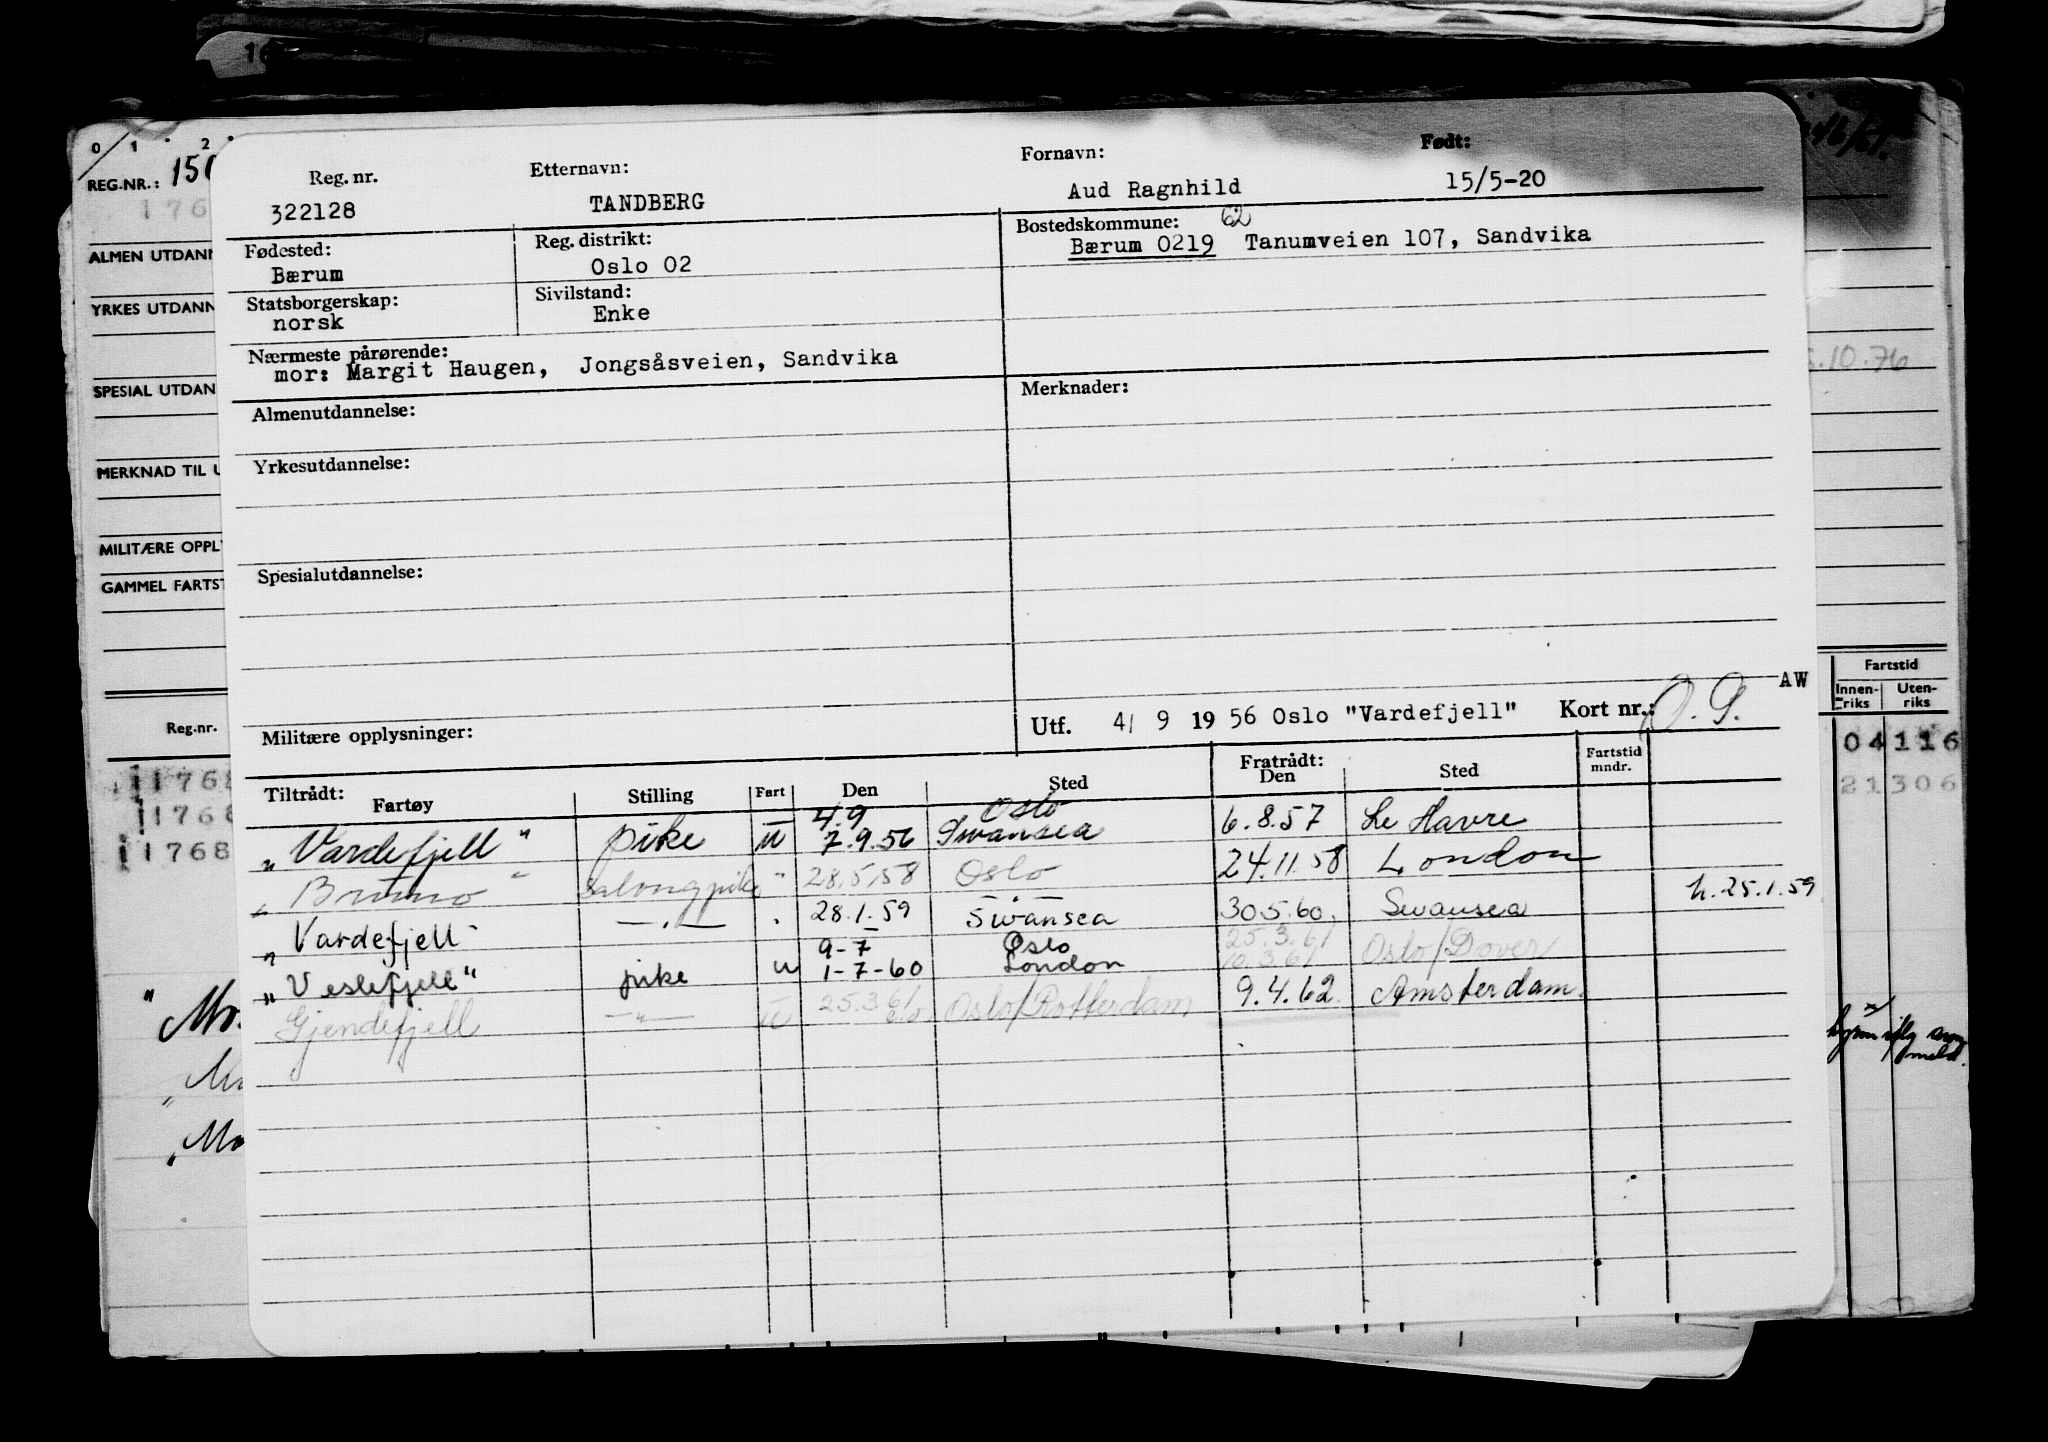 0 1 2
REG.NR.:
ALMEN UTDANN
YRKES UTDANN
SPESIAL UTDAN
MERKNAD TIL U
MILITÆRE OPPLY
GAMMEL FARTST
Reg.nr.
11768
1176
11768
" Mo.
Mo
Reg. nr. Etternavn: Fornavn: Født:
322128 TANDBERG Aud Ragnhild 15/5-20
Fødested: Reg. distrikt: Bostedskommune: 62
Bærum Oslo 02 Bærum 0219 Tanumveien 107, Sandvika
Statsborgerskap: Sivilstand:
norsk Enke
Nærmeste pårørende:
mor: Margit Haugen, Jongsåsveien, Sandvika
Almenutdannelse: Merknader:
Yrkesutdannelse:
Spesialutdannelse:
AW
Militære opplysninger: Utf. 4/ 9 19 56 Oslo "Vardefjell" Kort nr.:
Tiltrådt: Fartøy Stilling Fart Den Sted Fratrådt: Den Sted Fartstid mndr.
4.9 Oslo
"Vardefjell" pike u 7.9.56 Swansea 6.8.57 Le Havre
"Bruno" Salongpike " 28.5.58 Oslo 24.11.58 London
"Vardefjell" —"— 28.1.59 Swansea 30.5.60. Swansea h. 25.1.59
9-7 Oslo 25.3.61
"Veslefjell" pike u 1-7-60 London 10.3.61 Oslo/Dover
Gjendefjell —"— u 25.3 61 Oslo/Rotterdam 9.4.62 Amsterdam.
10.76
Fartstid
Innen-riks Uten-riks
04 116
21 306